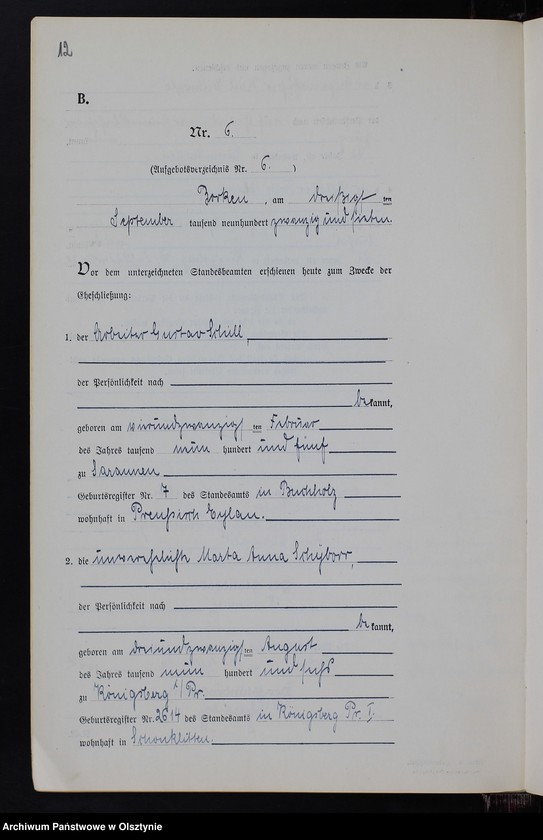 12
B.
Nr. 6.
(Aufgebotsverzeichnis Nr. 6. )
Borken , am dreißigsten
September tausend neunhundert zwanzig und sieben.
Vor dem unterzeichneten Standesbeamten erschienen heute zum Zwecke der
Eheschließung:
1. der Arbeiter Gustav Schill,
der Persönlichkeit nach
bekannt,
geboren am vierundzwanzigsten Februar
des Jahres tausend neun hundert und fünf
zu Saraunen
Geburtsregister Nr. 7 des Standesamts in Buchholz
wohnhaft in Preußisch Eylau.
2. die unverehelichte Marta Anna
der Persönlichkeit nach
bekannt,
geboren am dreiundzwanzigsten August
des Jahres tausend neun hundert und sechs
zu Königsberg i/Pr.
Geburtsregister Nr. 2614 des Standesamts in Königsberg Pr. I.
wohnhaft in Schönklitten.
Archiwum Państwowe w Olsztynie